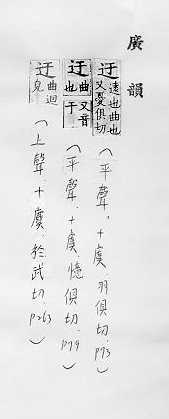 廣韻
迂 遠也曲也又憂俱切(平聲.十虞.羽俱切.p73)
迂 曲也又音于(平聲.十虞.憶俱切.p79)
迂 曲迴皃(上聲.十虞.於武切.p263)